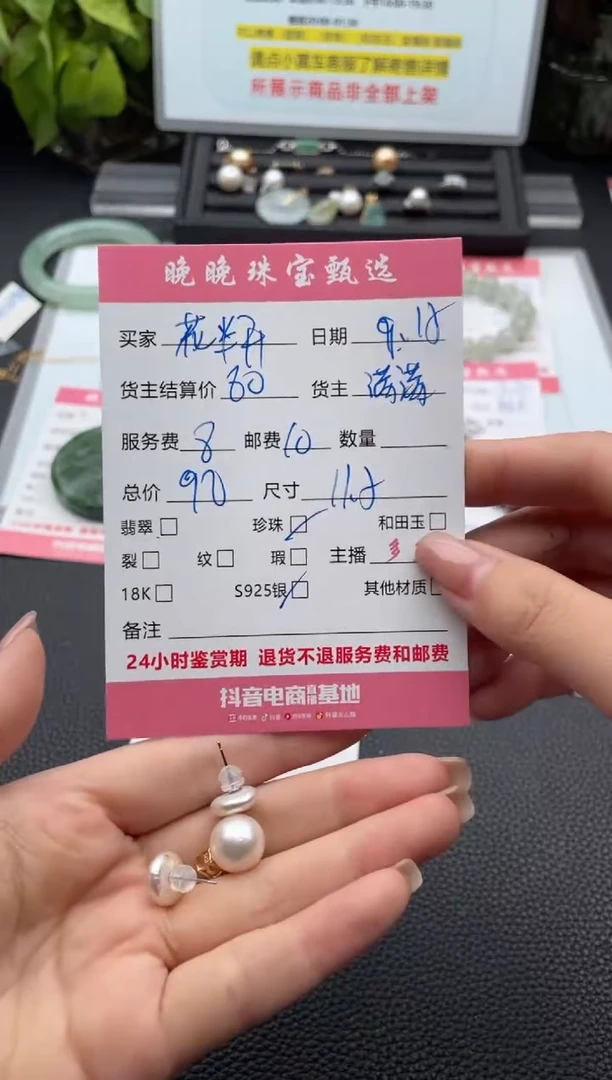 请点小黄车客服了解寄售详情
所展示商品非全部上架
晚晚珠宝甄选
买家 花半开 日期 9.18
货主结算价 80 货主 满满
服务费 8 邮费 10 数量
总价 98 尺寸 11.8
翡翠 珍珠 和田玉
裂 纹 瑕 主播
18K S925银 其他材质
备注
24小时鉴赏期 退货不退服务费和邮费
抖音电商直播基地